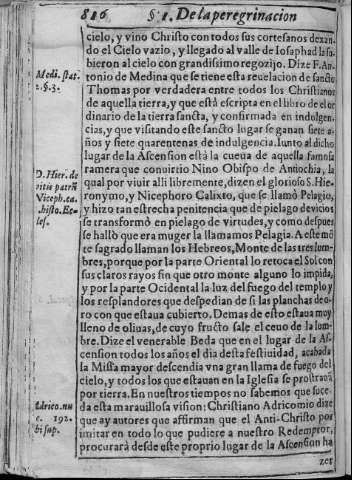 816 §1. De la peregrinacion
cielo, y vino Christo con todos sus cortesanos dexan-
do el Cielo vazio, y llegado al valle de Iosaphad la su-
bieron al cielo con grandissimo regozijo. Dize F. An-
Medi. stat.
2. §. 3.
tonio de Medina que se tiene esta reuelacion de sancto
Thomas por verdadera entre todos los Christianos
de aquella tierra, y que està escripta en el libro de el or
dinario de la tierra sancta, y confirmada en indulgen-
cias, y que visitando este sancto lugar se ganan siete a-
ños y siete quarentenas de indulgencia. Iunto al dicho
lugar de la Ascension està la cueua de aquella famosa
D. Hier. de
vitis patrũ
Niceph. ca.
histo. Ec-
les.
ramera que conuirtio Nino Obispo de Antiochia, la
qual por viuir alli libremente, dizen el glorioso S. Hie-
ronymo, y Nicephoro Calixto, que se llamò Pelagio,
y hizo tan estrecha penitencia que de pielago de vicios
se transformò en pielago de virtudes, y como despues
se hallò que era muger la llamamos Pelagia. A este mõ
te sagrado llaman los Hebreos, Monte de las tres lum-
bres, porque por la parte Oriental lo retoca el Sol con
sus claros rayos sin que otro monte alguno lo impida,
y por la parte Ocidental la luz del fuego del templo y
los resplandores que despedian de si las planchas de o-
ro con que estaua cubierto. Demas de esto estaua muy
lleno de oliuas, de cuyo fructo sale el ceuo de la lum-
bre. Dize el venerable Beda que en el lugar de la As-
cension todos los años el dia desta festiuidad, acabada
la Missa mayor descendia vna gran llama de fuego del
cielo, y todos los que estauan en la Iglesia se prostrauã
por tierra. En nuestros tiempos no sabemos que suce-
Adrico. nu
c. 192.
bi sup.
da esta marauillosa vision: Christiano Adricomio dize
que ay autores que affirman que el Anti-Christo por
imitar en todo lo que pudiere a nuestro Redemptor,
procurarà desde este proprio lugar de la Ascension ha
zer